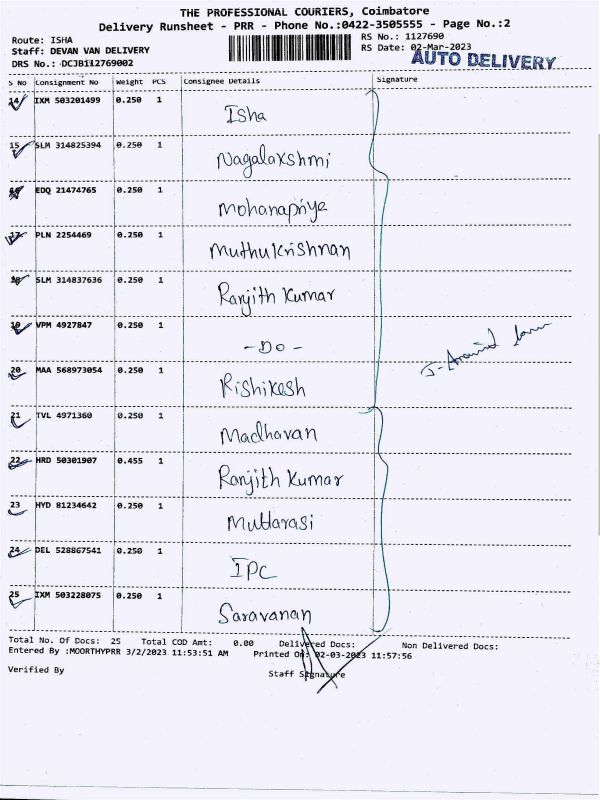 THE PROFESSIONAL COURIERS, Coimbatore
Delivery Runsheet - PRR - Phone No.:0422-3505555 - Page No.:2
Route: ISHA
Staff: DEVAN VAN DELIVERY
DRS No.: DCJB112769002
RS No.: 1127690
RS Date: 02-Mar-2023
AUTO DELIVERY
S No Consignment No Weight PCS Consignee Details Signature
14 IXM 503201499 0.250 1 Isha
15 SLM 314825394 0.250 1 Nagalakshmi
16 EDQ 21474765 0.250 1 Mohanapriya
17 PLN 2254469 0.250 1 Muthukrishnan
18 SLM 314837636 0.250 1 Ranjith Kumar
19 VPM 4927847 0.250 1 -Do-
20 MAA 568973054 0.250 1 Rishikesh
21 TVL 4971360 0.250 1 Madhavan
22 HRD 50301907 0.455 1 Ranjith Kumar
23 HYD 81234642 0.250 1 Muttarasi
24 DEL 528867541 0.250 1 IPC
25 IXM 503228075 0.250 1 Saravanan
Total No. Of Docs: 25 Total COD Amt: 0.00 Delivered Docs: Non Delivered Docs:
Entered By :MOORTHYPRR 3/2/2023 11:53:51 AM Printed On: 02-03-2023 11:57:56
Verified By Staff Signature